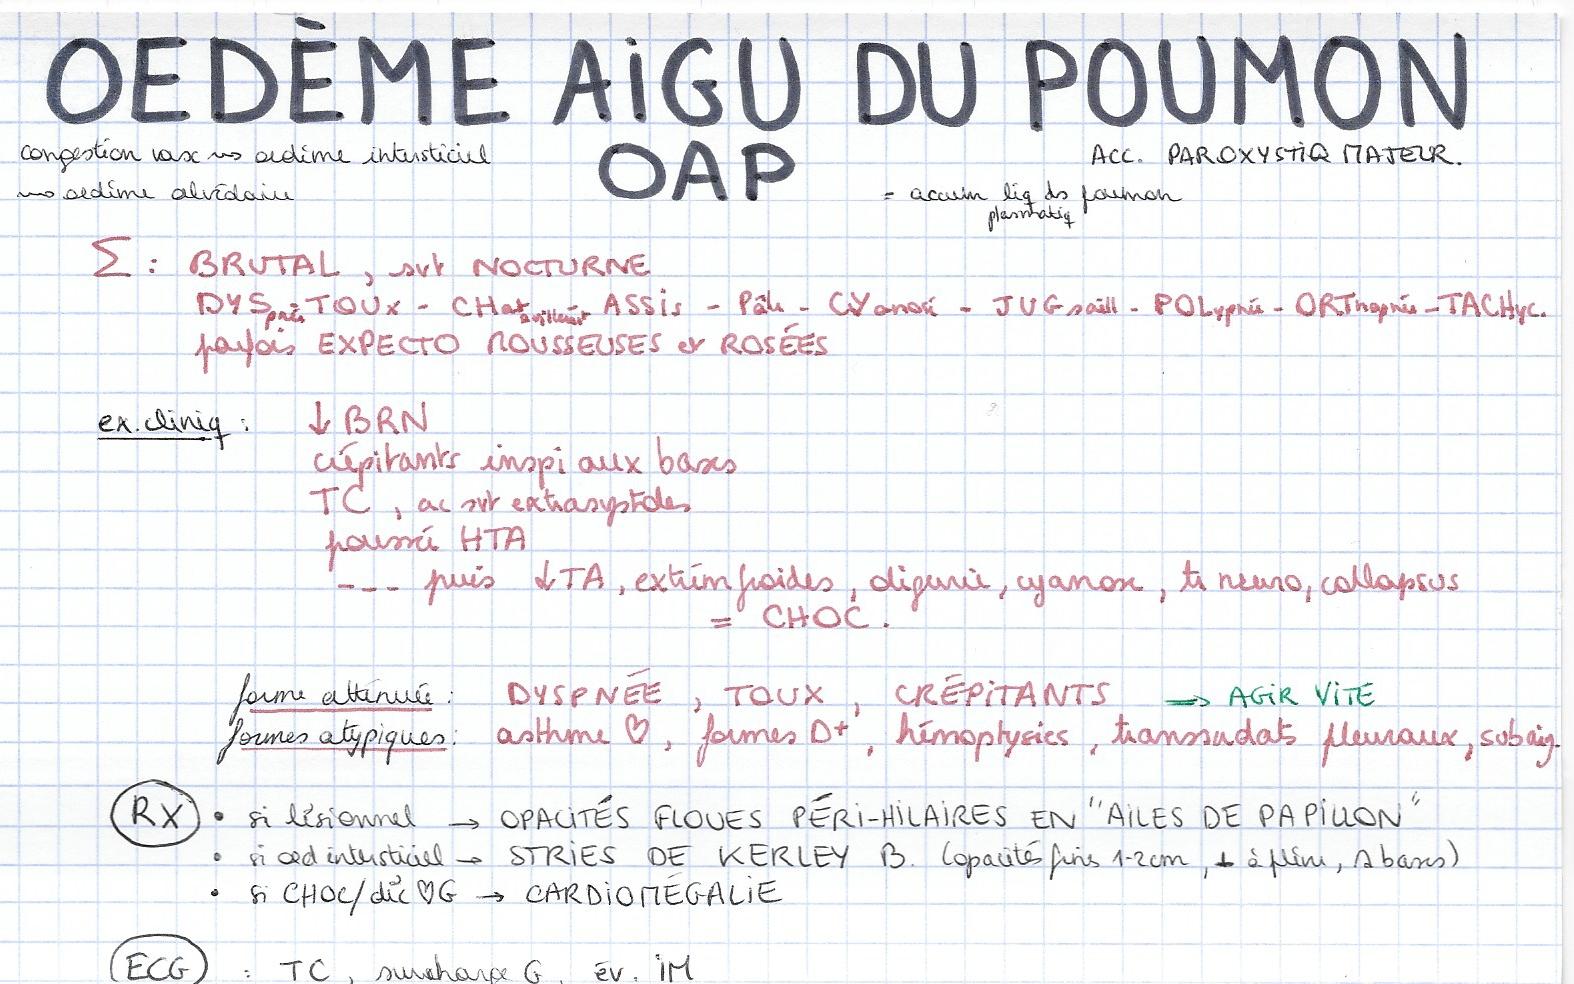 OEDÈME AiGU DU POUMON
OAP
congestion vasc ~> oedème interstitiel
~> oedème alvéolaire
ACC. PAROXYSTiQ MAJEUR.
= accum liq ds poumon
plasmatiq
Σ : BRUTAL, svt NOCTURNE
DYSpnée TOUX - CHatouillemt ASSis - Pâle - CYanosé - JUGsaill - POLypnée - ORThopnée - TACHyc.
parfois EXPECTO MOUSSEUSES et ROSÉES
ex. cliniq : ↓ BRN
crépitants inspi aux bases
TC, ac svt extrasystoles
poussée HTA
--- puis ↓TA, extrêm froides, oligurie, cyanose, tr neuro, collapsus
= CHOC.
forme atténuée : DYSPNÉE, TOUX, CRÉPiTANTS => AGiR ViTE
formes atypiques : asthme ♡, formes D+, hémoptysies, transsudats pleuraux, subaig.
RX • si lésionnel → OPACiTÉS FLOUES PÉRi-HiLAiRES EN "AiLES DE PAPiLLON"
• si oed interstitiel → STRIES DE KERLEY B. (opacités fines 1-2cm, ⊥ à plèvre, bases)
• si CHOC/déc ♡G → CARDiOMÉGALiE
ECG : TC, surcharge G, év. iM